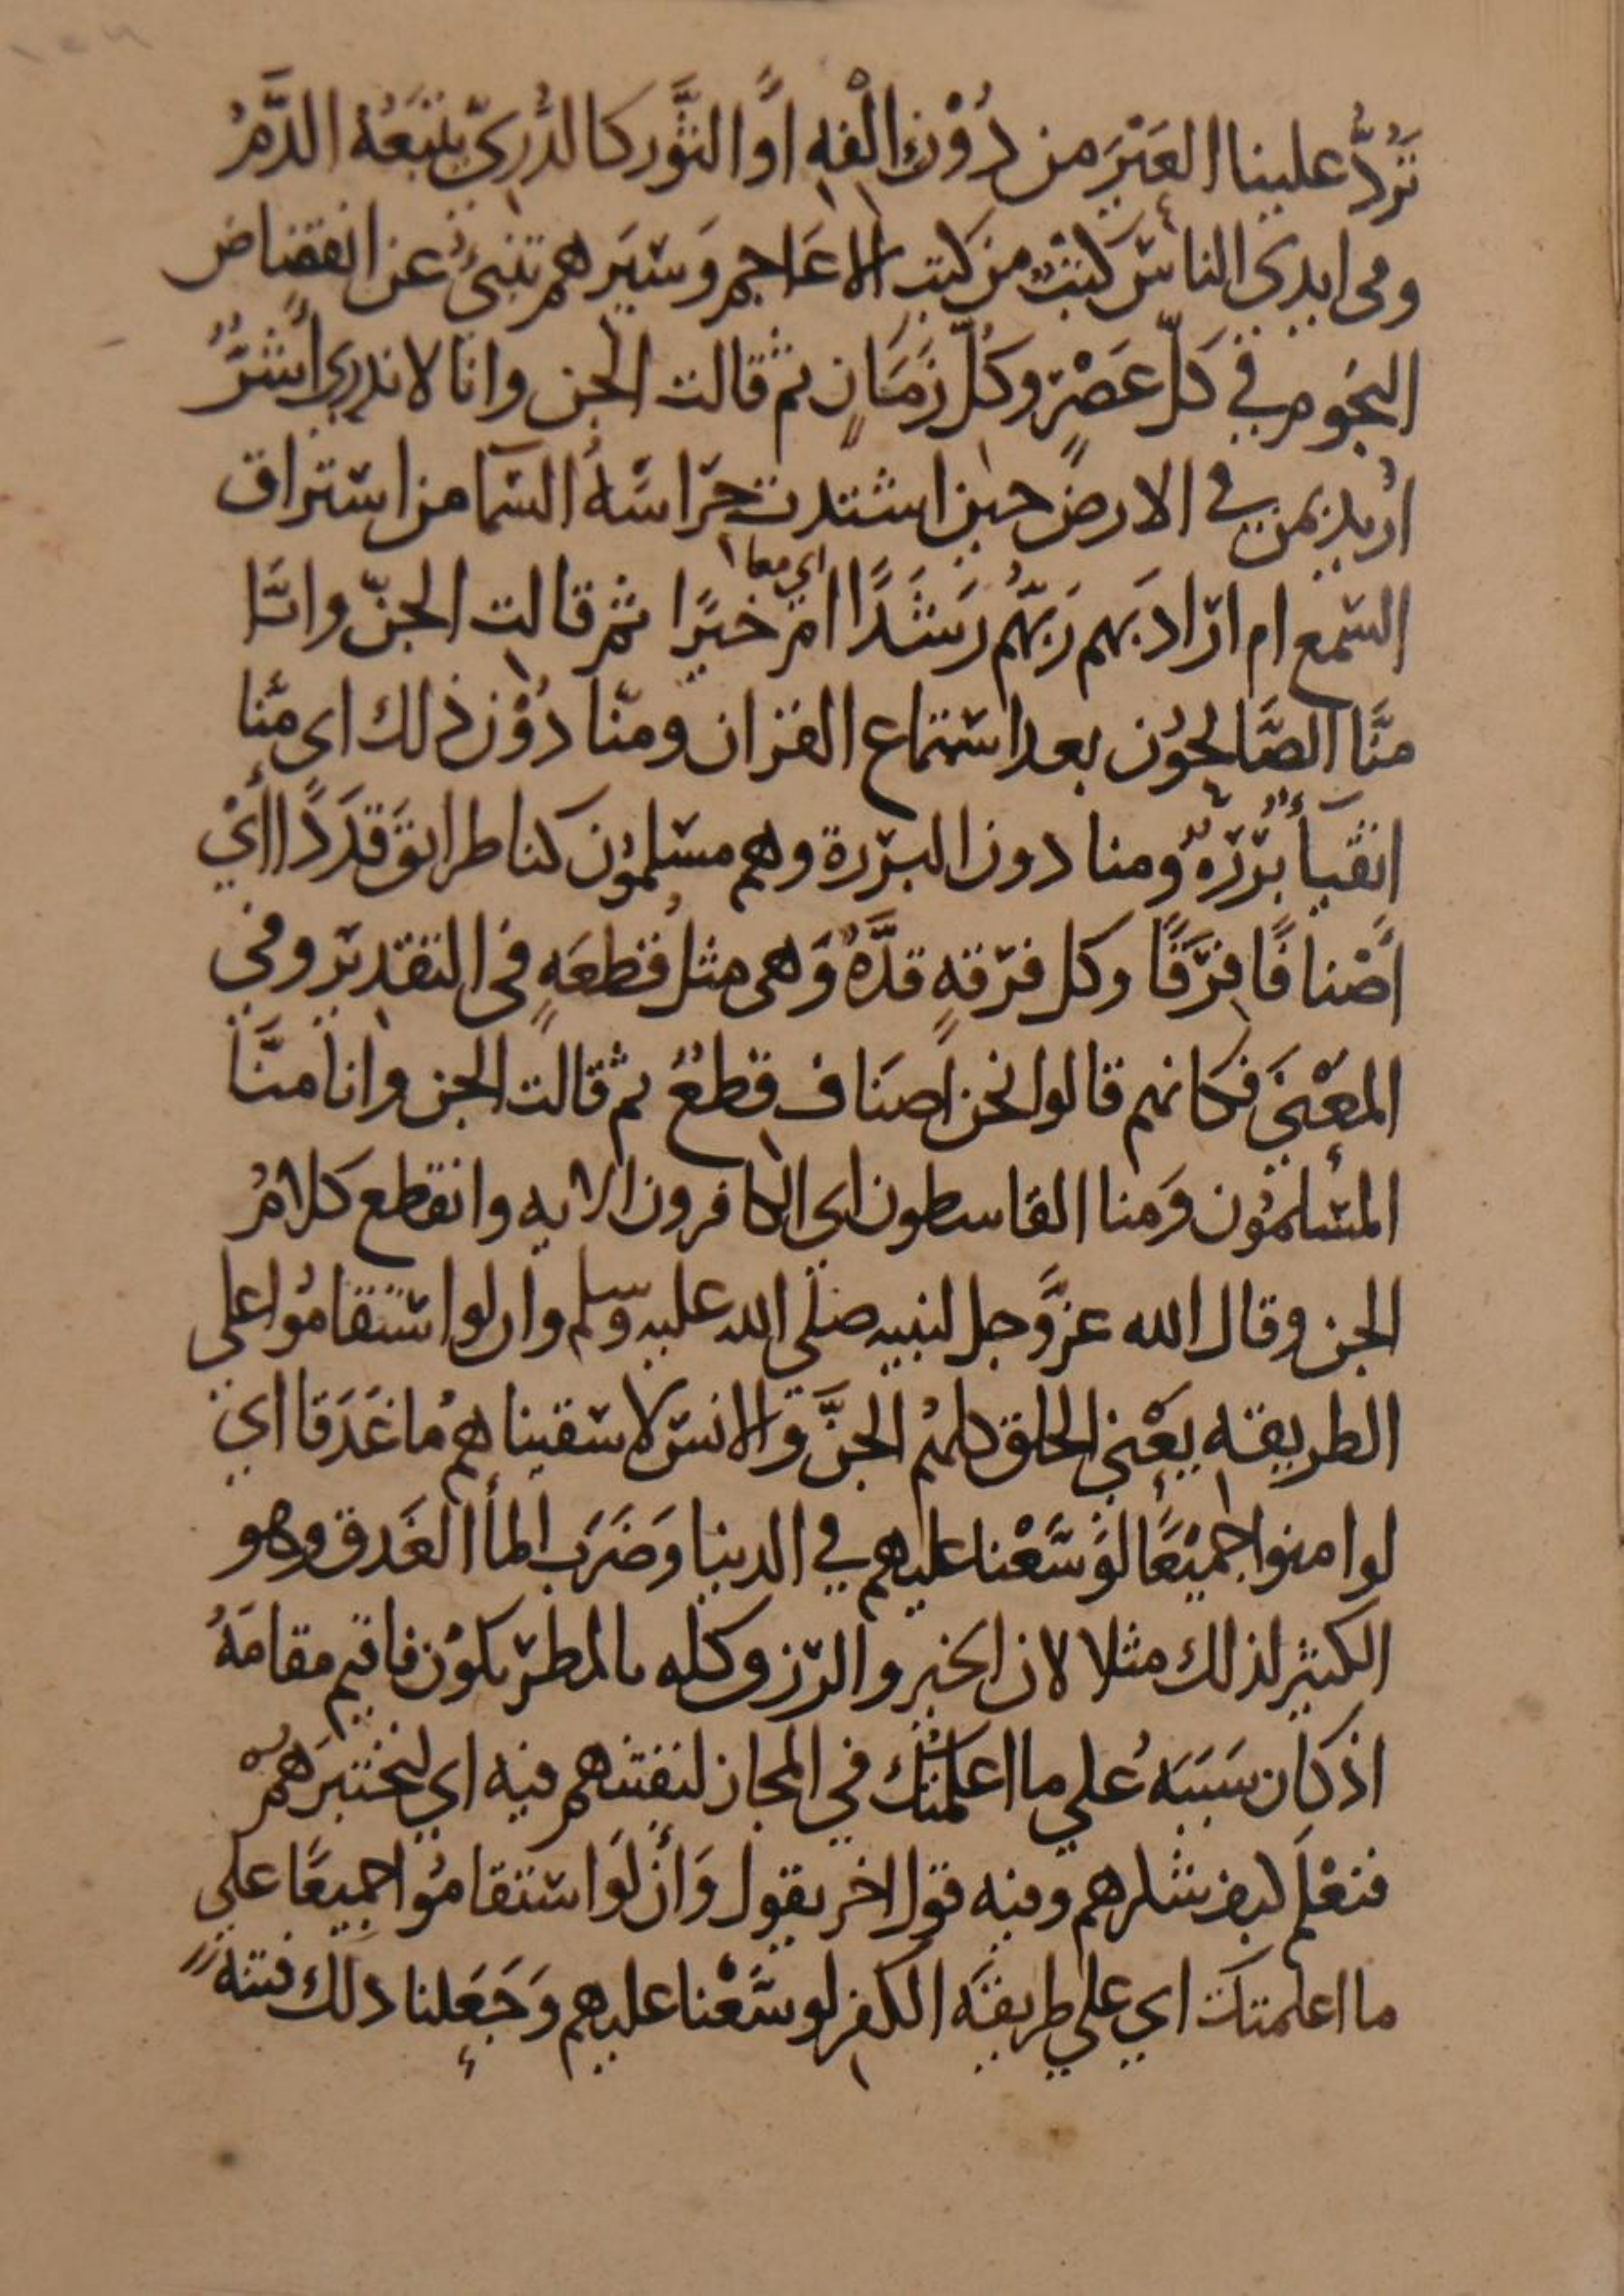 تَرُدُّ علينا العَيْرَ من دُوْن إلْفِهِ أوِ الثَّورَ كالدُّرِيّ يتبَعُهُ الدَّمُ
وفى ايدي الناس كتبٌ من كتب الاعَاجِمِ وَسِيَرِهم تنبئُ عن انقضاضِ
النجُومِ في كلّ عَصْرٍ وكلّ زَمَانٍ ثم قالت الجن وانا لا ندري أشَرٌّ
اُريد بمن في الارضِ حين اشتدت حِرَاسَةُ السَّما من استراق
السّمع ام ارَادَ بهم رَبُّهم رَشَدًا
اي معا
امْ خيرًا ثم قالت الجنّ وانَّا
منَّا الصَّالِحُوْن بعد استماع القران ومنّا دُوْن ذلك اى مِنّا
اتقيأُ بَرَرَةٌ ومنا دون البررة وهم مسلمُوْن كنا طرائقَ قِدَدًا أيْ
أصْنافًا فِرَقًا وكل فرقهٍ قِدَّهٌ وَهى مثل قِطعَهٍ في التقدير وفي
المعْنَي فكانهم قالوا نحن اصنَاف قِطعٌ ثم قالت الجن وانا منَّا
المسْلمُوْن وَمنا القاسطون اي الكافرون الايه وانقطع كلامُ
الجن وقال الله عزَّوجل لنبيه صلي الله عليه وسلم وان لو استقامُوا على
الطريقه يعْنِي الخلق كلهُم الجنَّ والانس لاسقيناهم ما غَدَقا اي
لو امنوا جميْعًا لوَسَّعْنا عليهم في الدنيا وَضَرَب المأ الغَدق وهو
الكثير لذلك مثلا لان الخير والرزق كله بالمطر يكوُن فاقيم مقامَهُ
اذ كان سَبَبَهُ علي ما اعلمتك في المجاز لنفتنهم فيه اي لنختبرَهُمْ
فنعْلَم كيف شكرهم وفيه قول اخر يقول وَأن لَو استقامُوا جميعًا علي
ما اعلمتك اي علي طريقه الكفر لوسَّعْنا عليهم وَجَعَلنا ذلك فتنةً